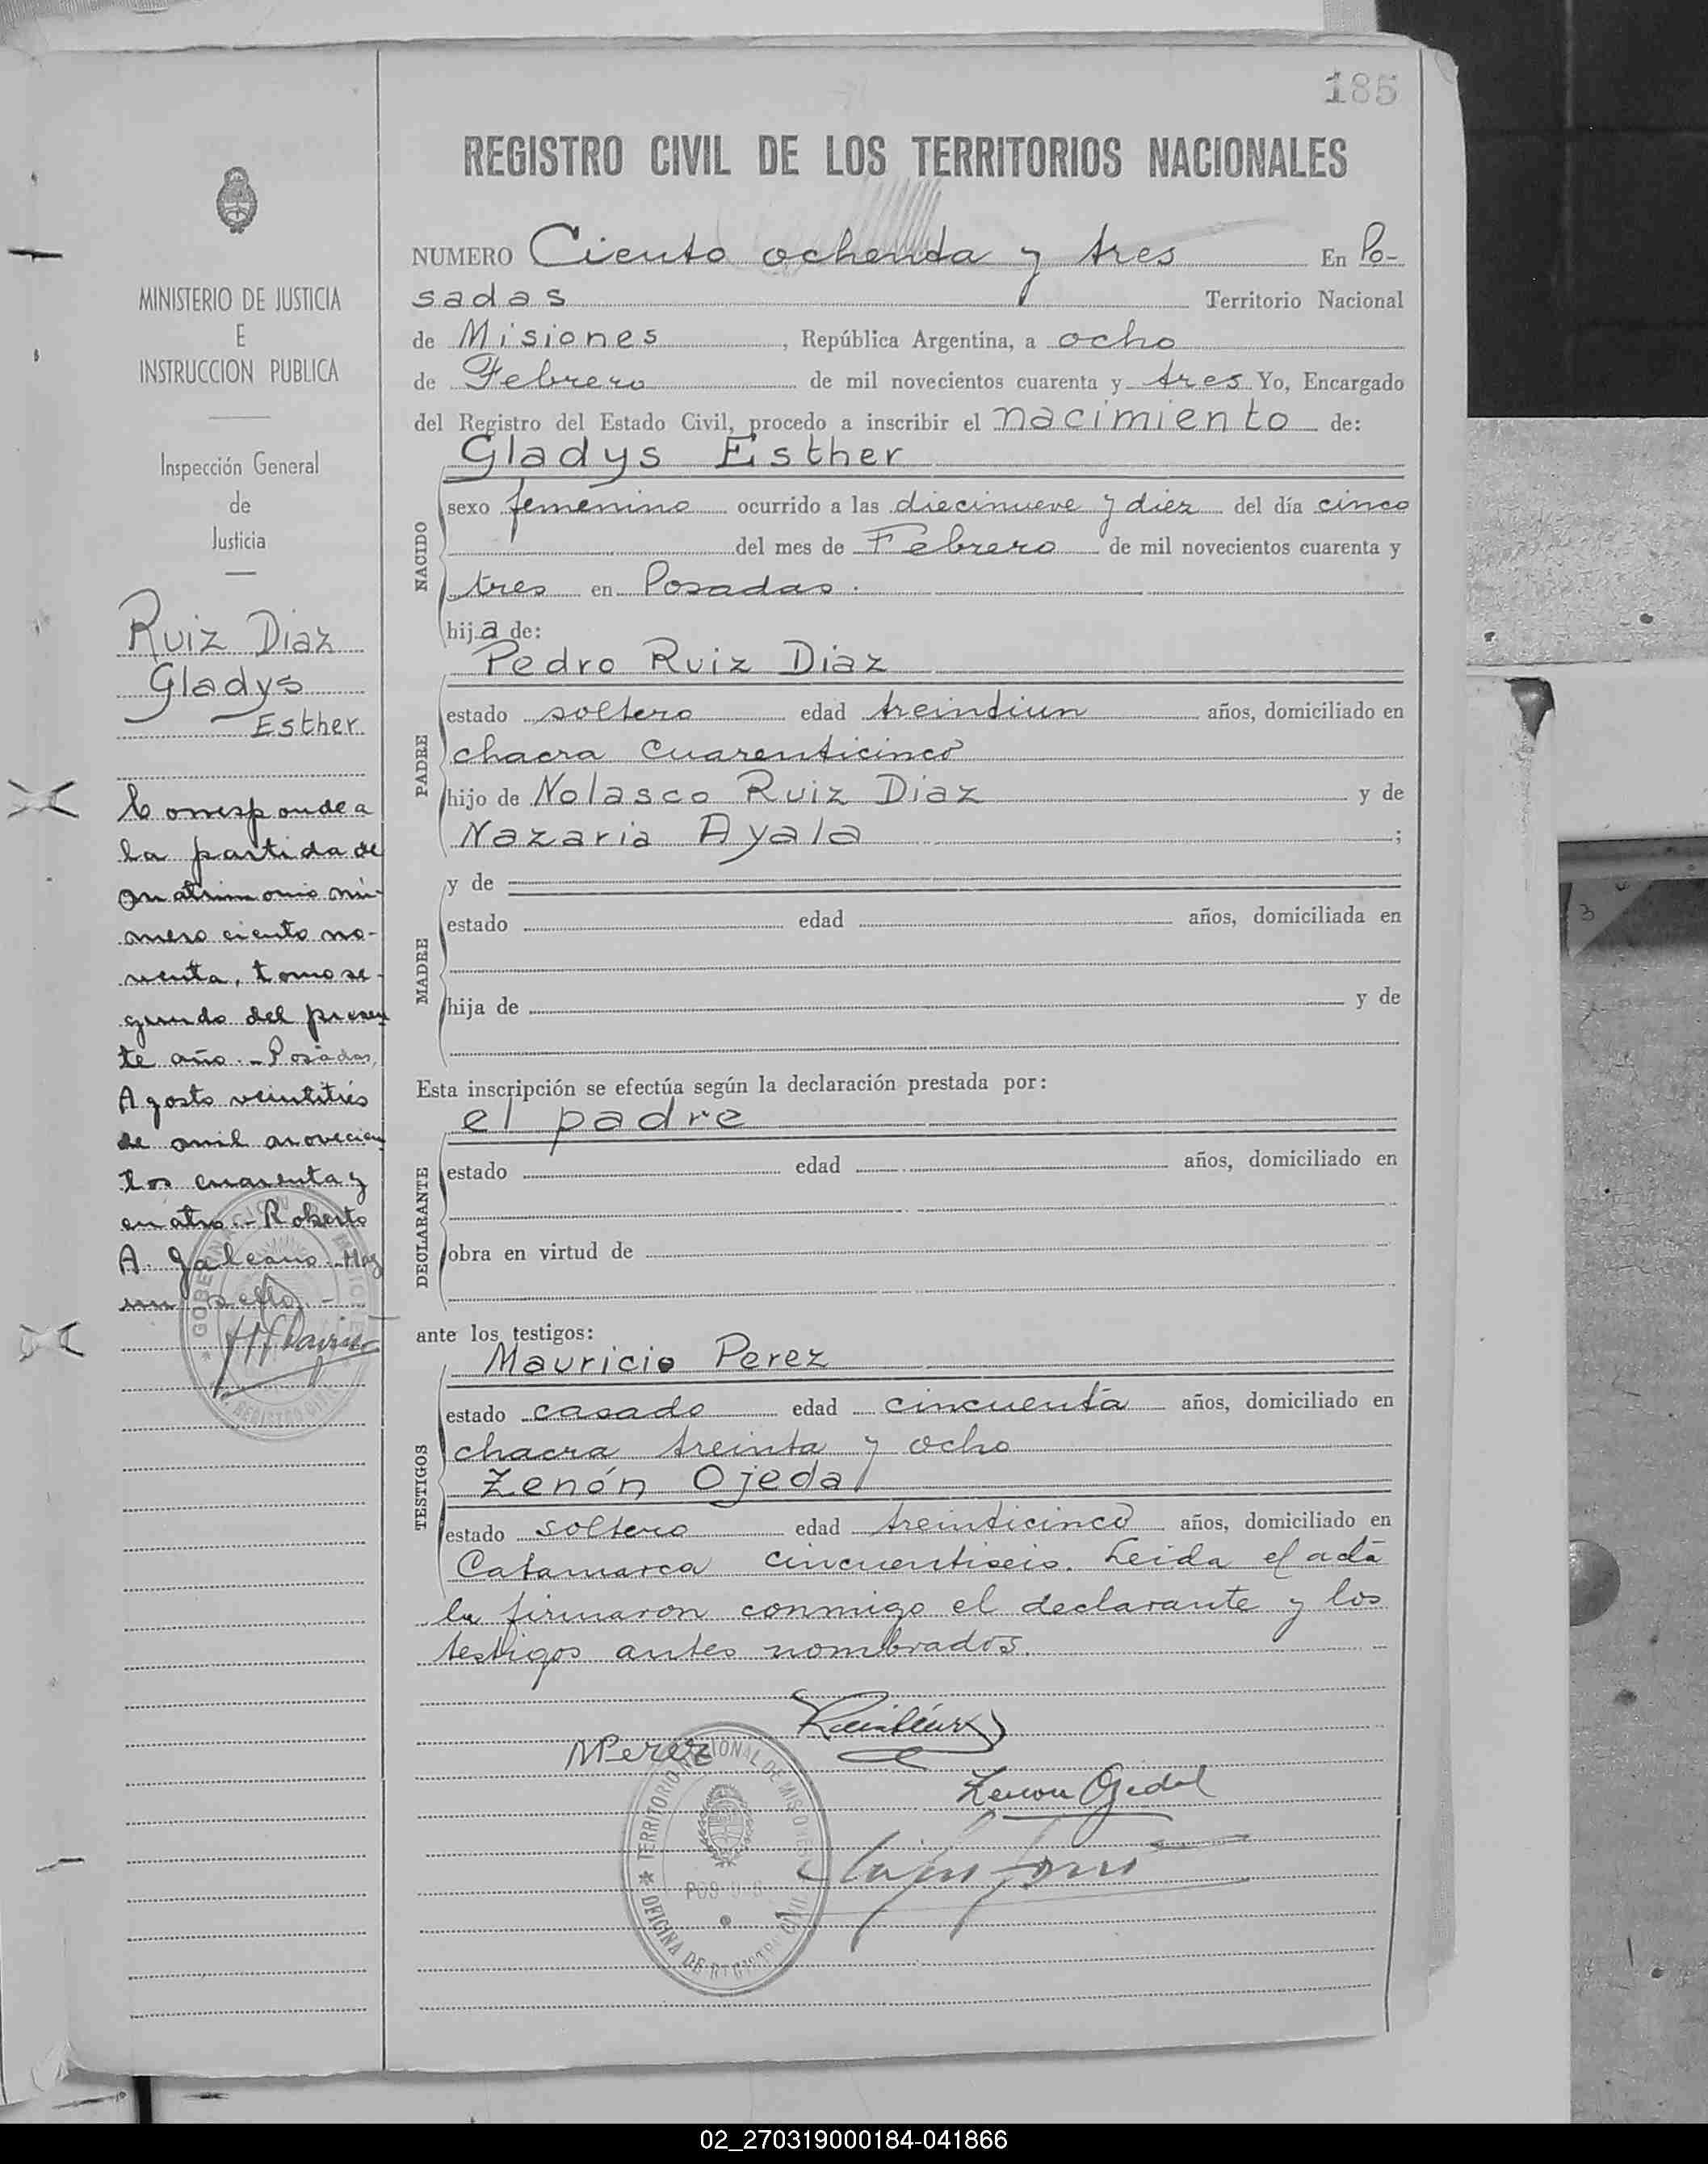 185
REGISTRO CIVIL DE LOS TERRITORIOS NACIONALES
NUMERO Ciento ochenta y tres En Po-
sadas Territorio Nacional
de Misiones, República Argentina, a ocho
de Febrero de mil novecientos cuarenta y tres Yo, Encargado
del Registro del Estado Civil, procedo a inscribir el nacimiento de:
Gladys Esther
NACIDO
sexo femenino ocurrido a las diecinueve y diez del día cinco
del mes de Febrero de mil novecientos cuarenta y
tres en Posadas.
hija de:
Pedro Ruiz Diaz
PADRE
estado soltero edad treintiun años, domiciliado en
chacra cuarenticinco
hijo de Nolasco Ruiz Diaz y de
Nazaria Ayala ;
MADRE
y de
estado edad años, domiciliada en
hija de y de
Esta inscripción se efectúa según la declaración prestada por:
el padre
DECLARANTE
estado edad años, domiciliado en
obra en virtud de
ante los testigos:
Mauricio Perez
TESTIGOS
estado casado edad cincuenta años, domiciliado en
chacra treinta y ocho
Zenón Ojeda
estado soltero edad treinticinco años, domiciliado en
Catamarca cincuentiseis. Leida el acta
la firmaron conmigo el declarante y los
testigos antes nombrados.
MPerez
Zenon Ojeda
TERRITORIO NACIONAL DE MISIONES
OFICINA DE REGISTRO CIVIL
MINISTERIO DE JUSTICIA
E
INSTRUCCION PUBLICA
Inspección General
de
Justicia
Ruiz Diaz
Gladys
Esther
Corresponde a
la partida de
matrimonio nú-
mero ciento no-
venta, tomo se-
gundo del presen
te año.- Posadas,
Agosto veintitrés
de mil novecien
tos cuarenta y
cuatro.- Roberto
A. Galeano.- Hay
un sello.-
02_270319000184-041866